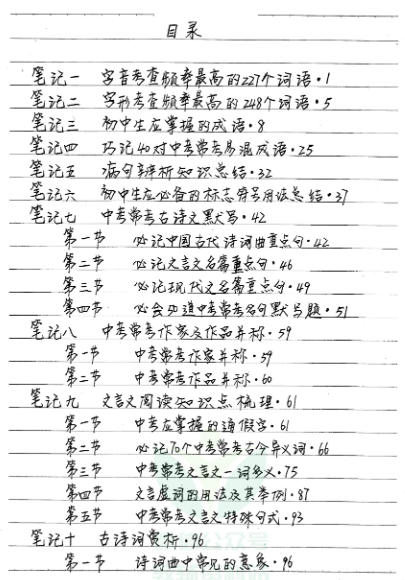 目录
笔记一 字音考查频率最高的227个词语·1
笔记二 字形考查频率最高的248个词语·5
笔记三 初中生应掌握的成语·8
笔记四 巧记40对中考常考易混成语·25
笔记五 病句辨析知识总结·32
笔记六 初中生应必备的标点符号用法总结·37
笔记七 中考常考古诗文默写·42
第一节 必记中国古代诗词曲重点句·42
第二节 必记文言文名篇重点句·46
第三节 必记现代文名篇重点句·49
第四节 必会50道中考常考名句默写题·51
笔记八 中考常考作家及作品并称·59
第一节 中考常考作家并称·59
第二节 中考常考作品并称·60
笔记九 文言文阅读知识点梳理·61
第一节 中考应掌握的通假字·61
第二节 必记70个中考常考古今异义词·66
第三节 中考常考文言文一词多义·75
第四节 文言虚词的用法及其举例·87
第五节 中考常考文言文特殊句式·93
笔记十 古诗词赏析·96
第一节 诗词曲中常见的意象·96